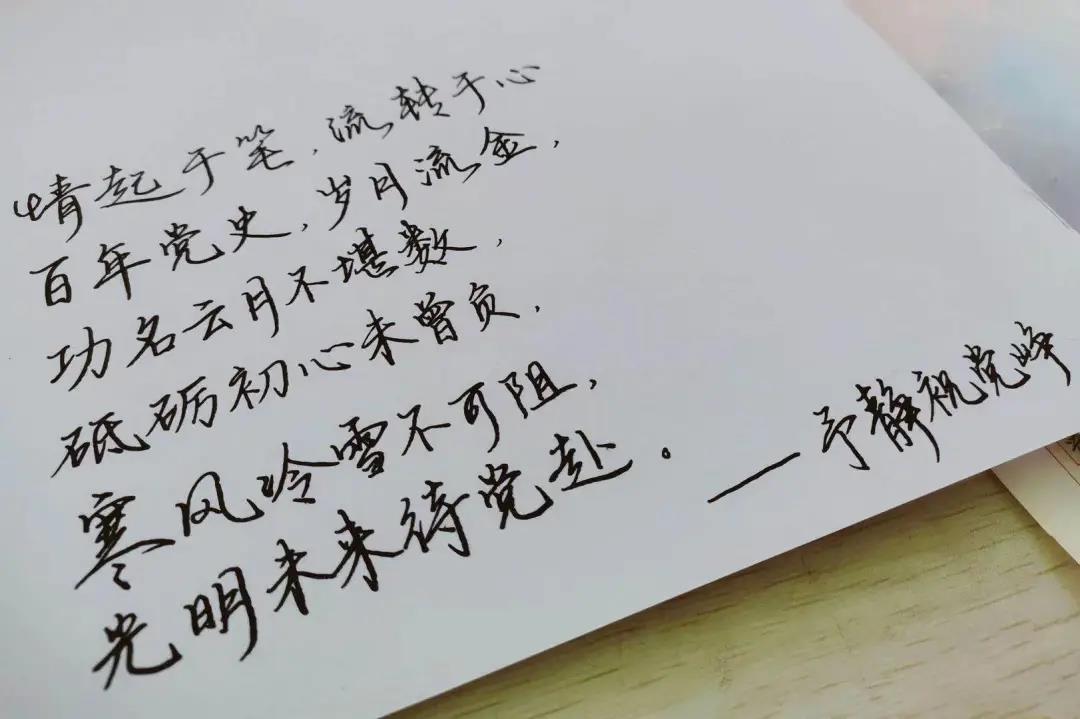 情起于笔,流转于心
百年党史,岁月流金,
功名云月不堪数,
砥砺初心未曾负,
寒风冷雪不可阻,
光明未来待党赴。
—予静祝党峥